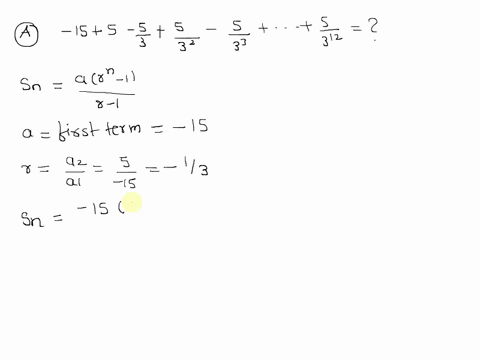 (A) -15 + 5 - 5/3 + 5/3² - 5/3³ + ... + 5/3¹² = ?
Sn = a(rⁿ-1)/r-1
a = first term = -15
r = a2/a1 = 5/-15 = -1/3
Sn = -15 (